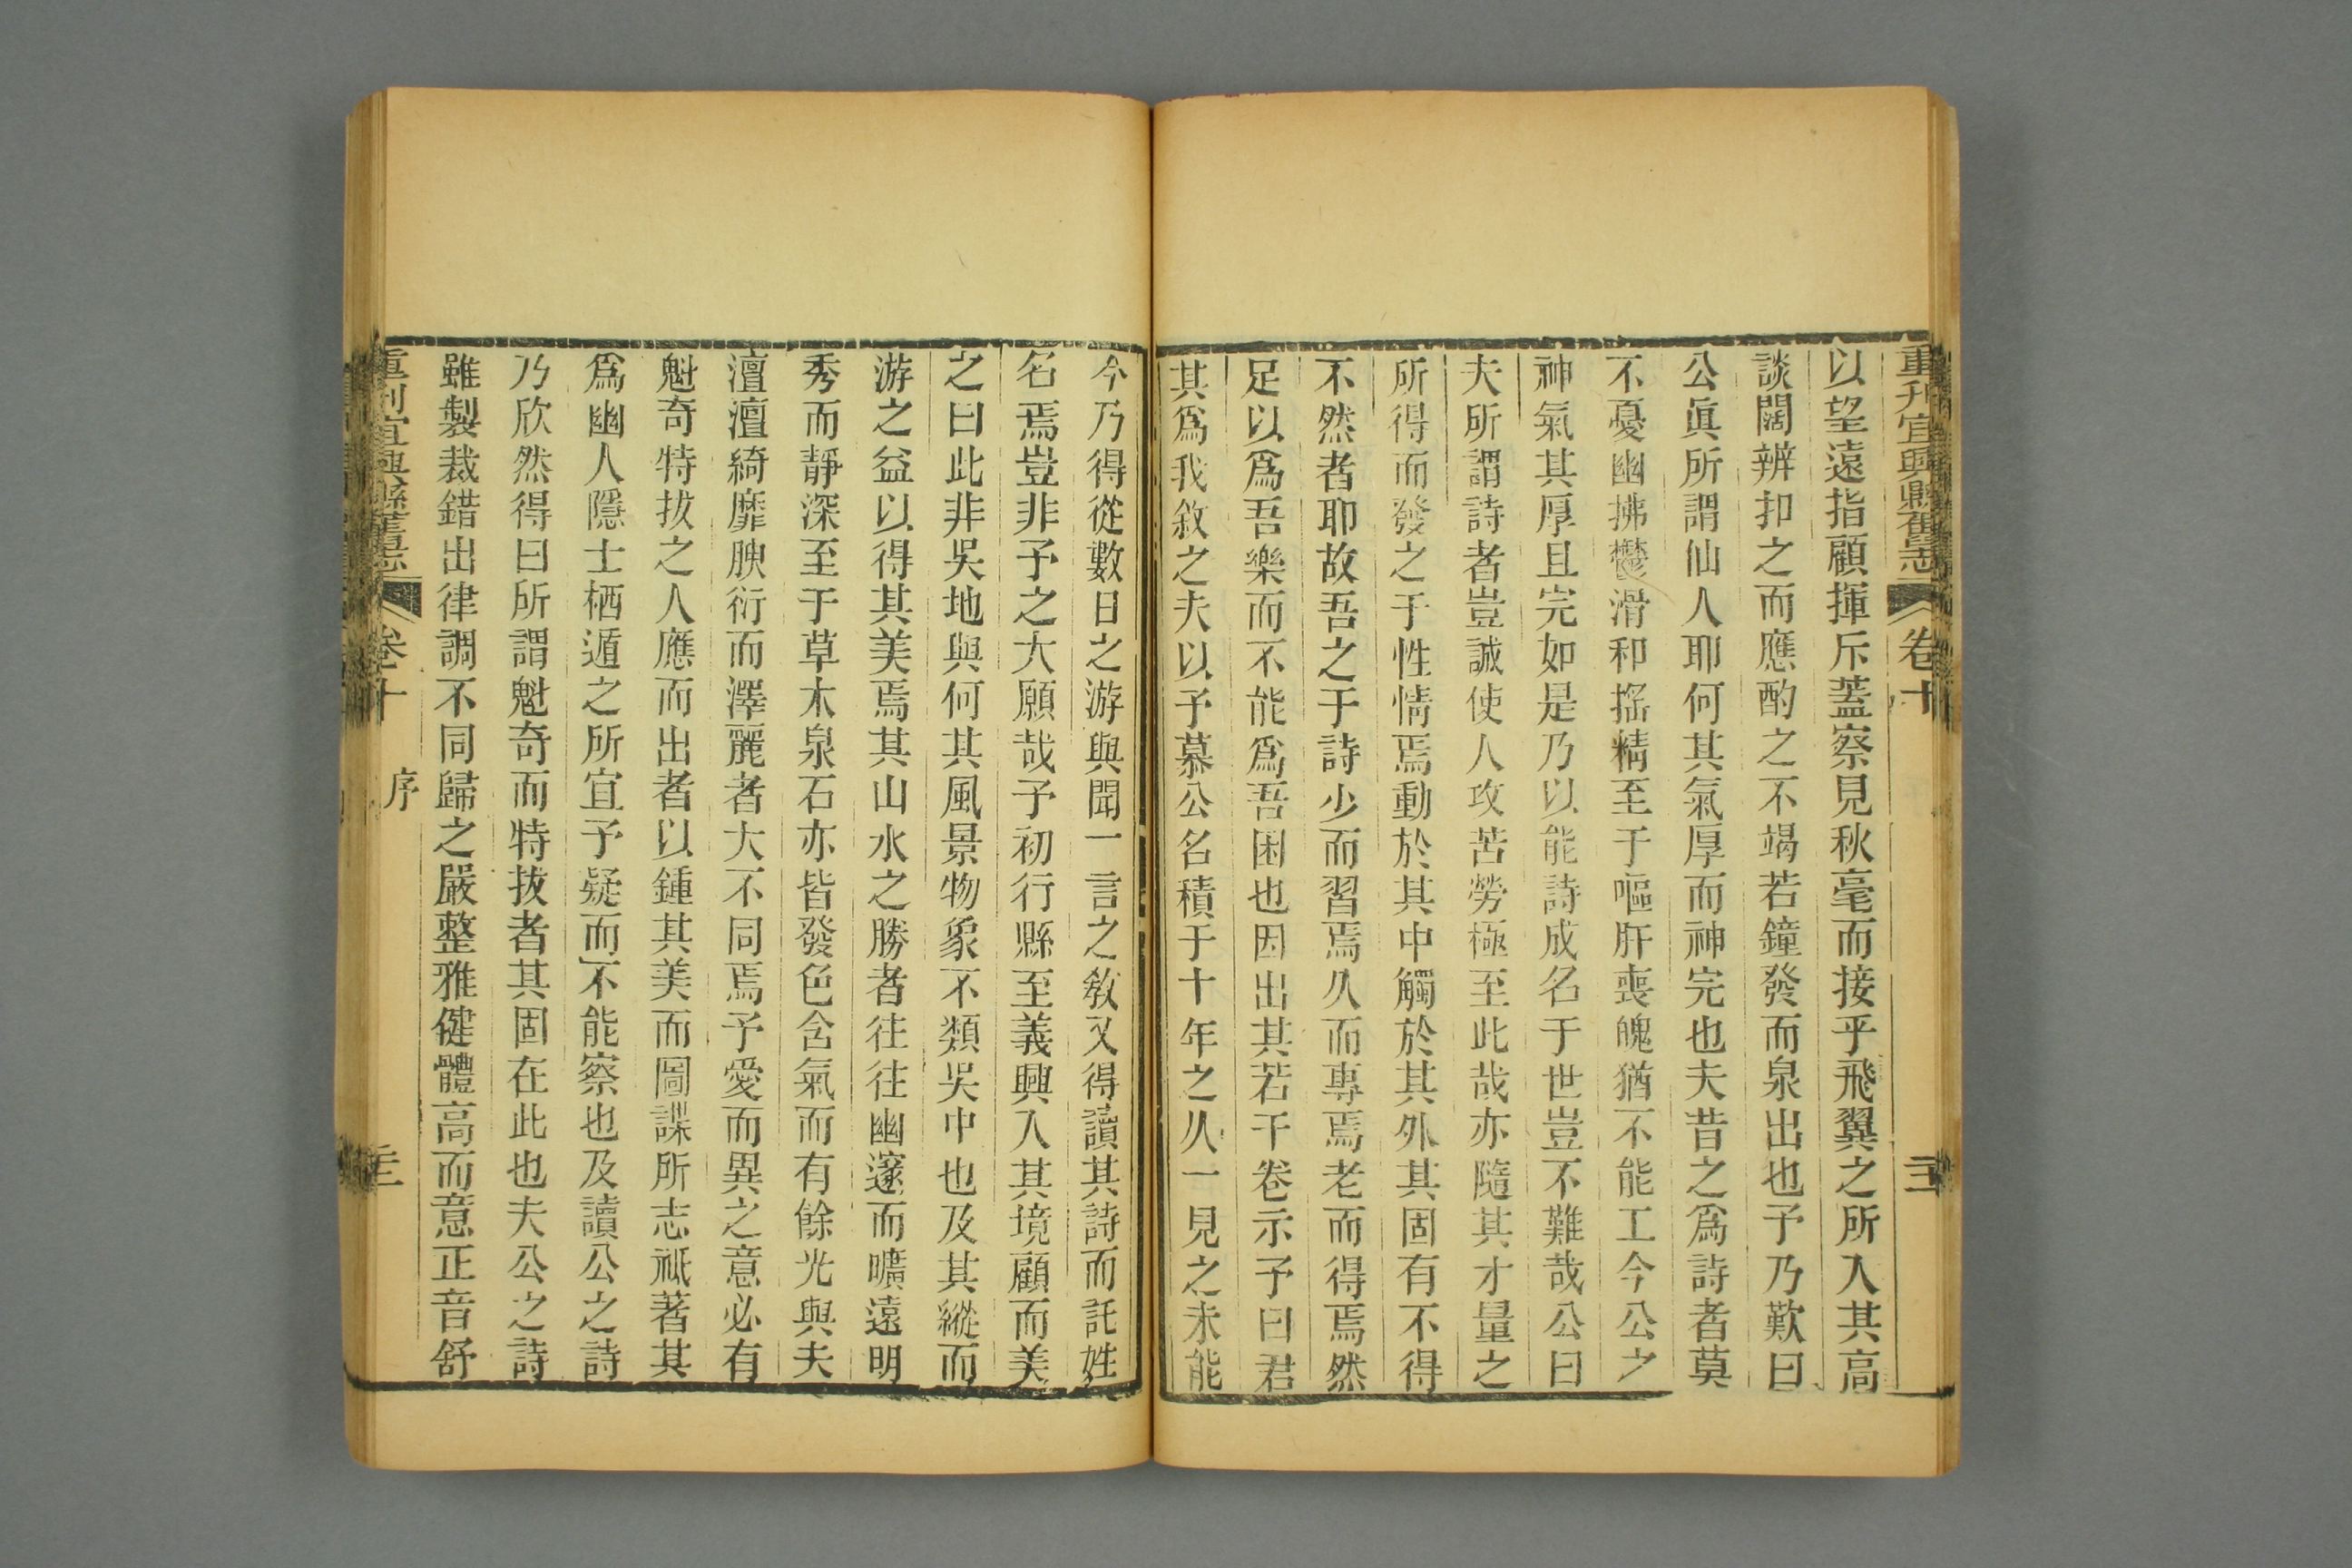 重刊宜興縣舊志
卷十
以望遠指顧揮斥蓋察見秋毫而接乎飛翼之所入其高
談闊辨扣之而應酌之不竭若鐘發而泉出也予乃歎曰
公眞所謂仙人耶何其氣厚而神完也夫昔之爲詩者莫
不憂幽拂鬱滑和搖精至于嘔肝喪魄猶不能工今公之
神氣其厚且完如是乃以能詩成名于世豈不難哉公曰
夫所謂詩者豈誠使人攻苦勞極至此哉亦隨其才量之
所得而發之于性情焉動於其中觸於其外其固有不得
不然者耶故吾之于詩少而習焉久而專焉老而得焉然
足以爲吾樂而不能爲吾困也因出其若干卷示予曰君
其爲我敘之夫以予慕公名積于十年之久一見之未能
今乃得從數日之游與聞一言之敎又得讀其詩而託姓
名焉豈非予之大願哉予初行縣至義興入其境顧而美
之曰此非吳地與何其風景物象不類吳中也及其縱而
游之益以得其美焉其山水之勝者往往幽邃而曠遠明
秀而靜深至于草木泉石亦皆發色含氣而有餘光與夫
澶澶綺靡腴衍而澤麗者大不同焉予愛而異之意必有
魁奇特拔之人應而出者以鍾其美而圖諜所志祇著其
爲幽人隱士栖遁之所宜予疑而不能察也及讀公之詩
乃欣然得曰所謂魁奇而特拔者其固在此也夫公之詩
雖製裁錯出律調不同歸之嚴整雅健體高而意正音舒
重刊宜興縣舊志
卷十
序